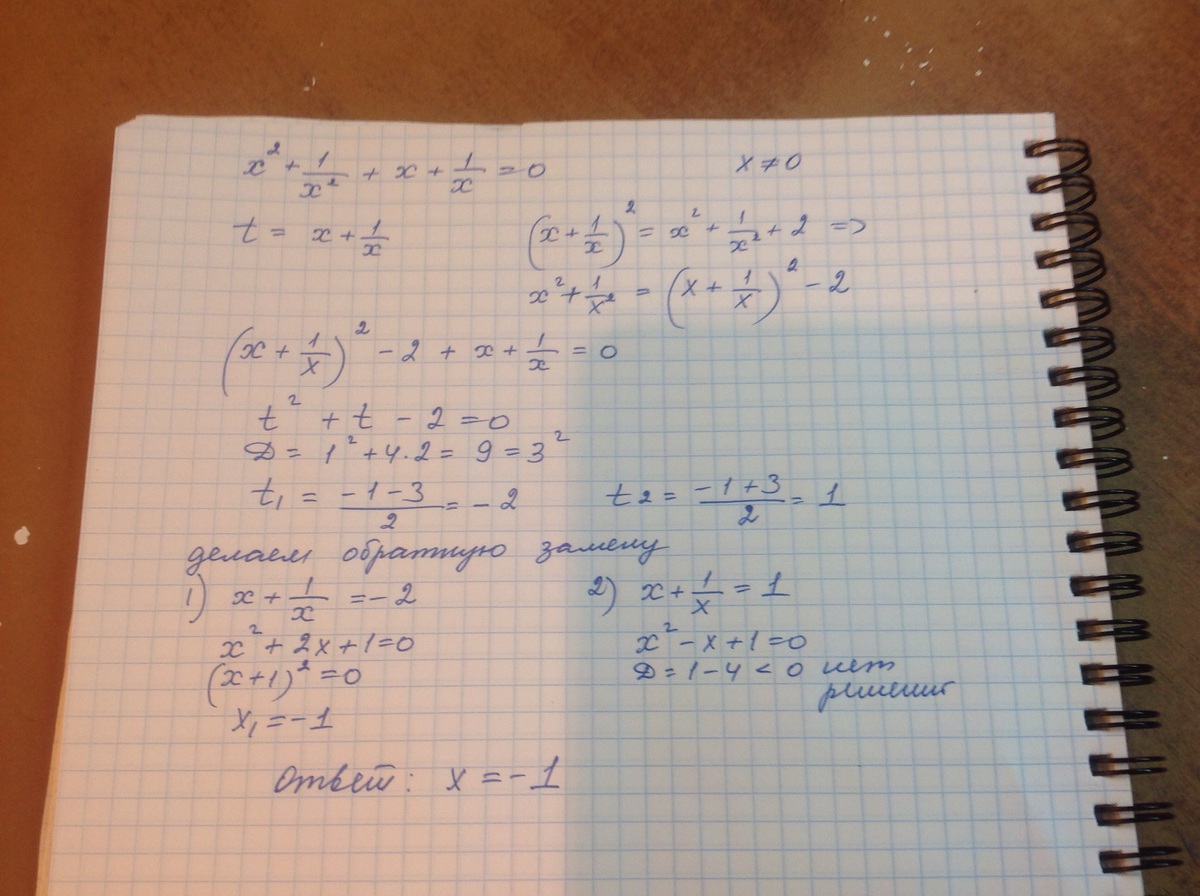 x² + 1/x² + x + 1/x = 0    x ≠ 0
t = x + 1/x    (x + 1/x)² = x² + 1/x² + 2 =>
x² + 1/x² = (x + 1/x)² - 2
(x + 1/x)² - 2 + x + 1/x = 0
t² + t - 2 = 0
D = 1² + 4·2 = 9 = 3²
t₁ = (-1-3)/2 = -2    t₂ = (-1+3)/2 = 1
делаем обратную замену
1) x + 1/x = -2    2) x + 1/x = 1
x² + 2x + 1 = 0    x² - x + 1 = 0
(x+1)² = 0    D = 1 - 4 < 0 нет
решений
x₁ = -1
Ответ: x = -1